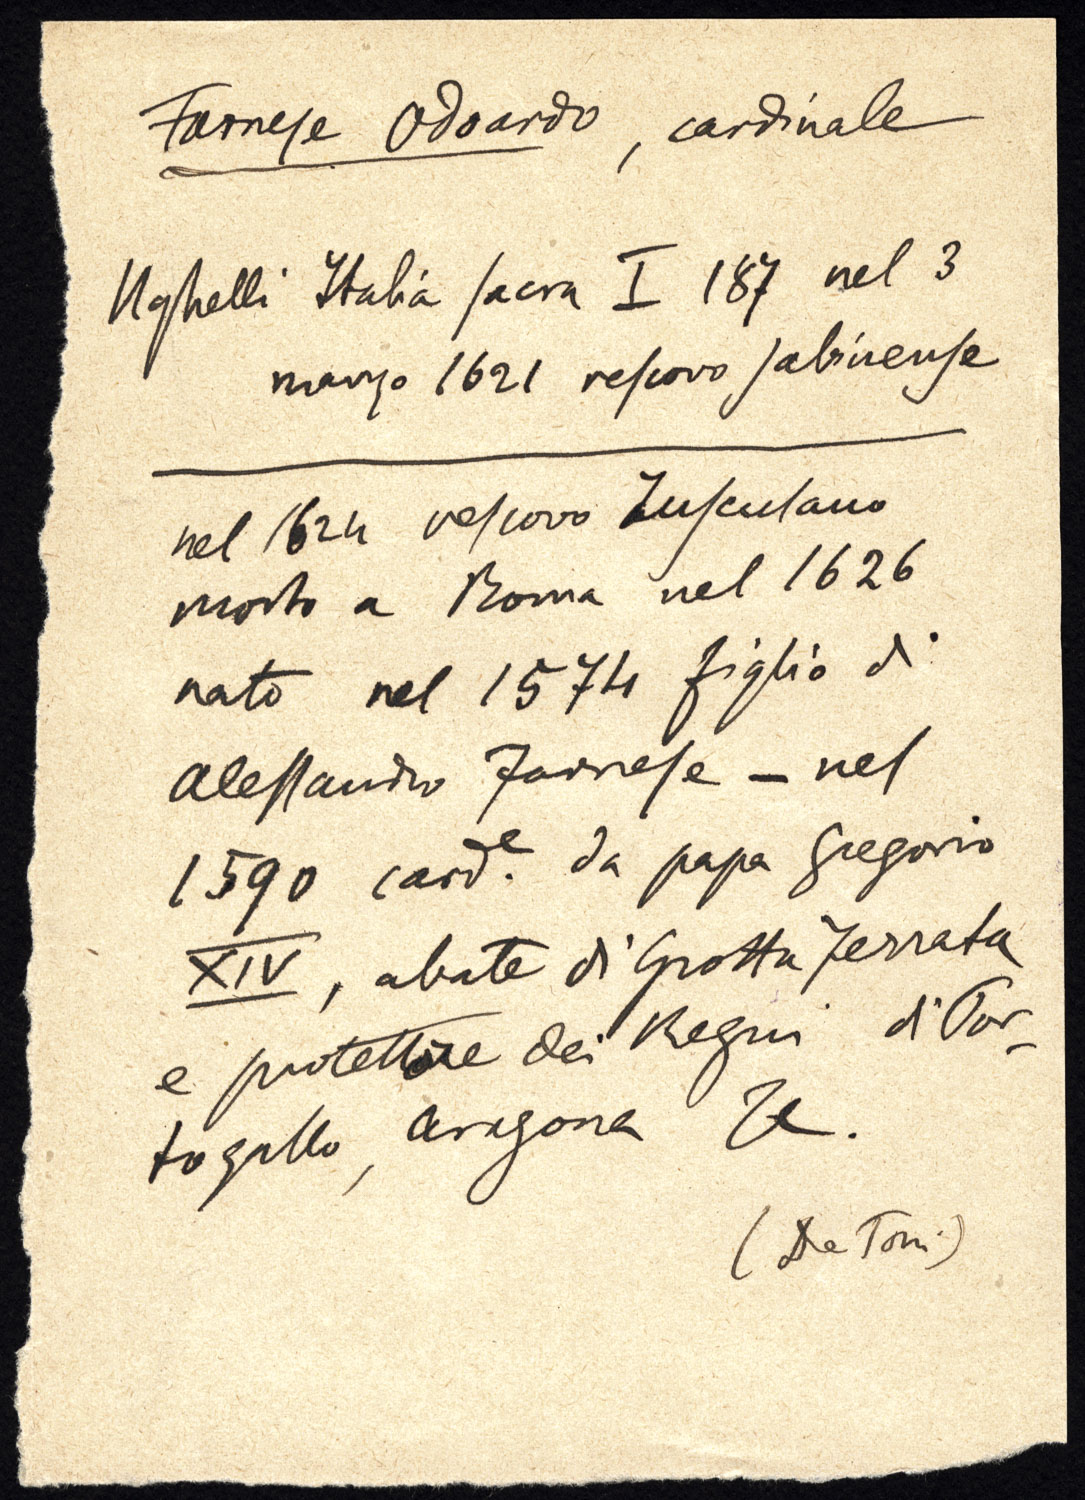 Farnese Odoardo, cardinale
Ughelli Italia sacra I 187 nel 3
marzo 1621 vescovo sabinense
nel 1624 vescovo Tusculano
morto a Roma nel 1626
nato nel 1574 figlio di
Alessandro Farnese – nel
1590 card.e da papa Gregorio
XIV, abate di Grotta Ferrata
e protettore dei Regni di Por-
togallo, Aragona
(De Toni)